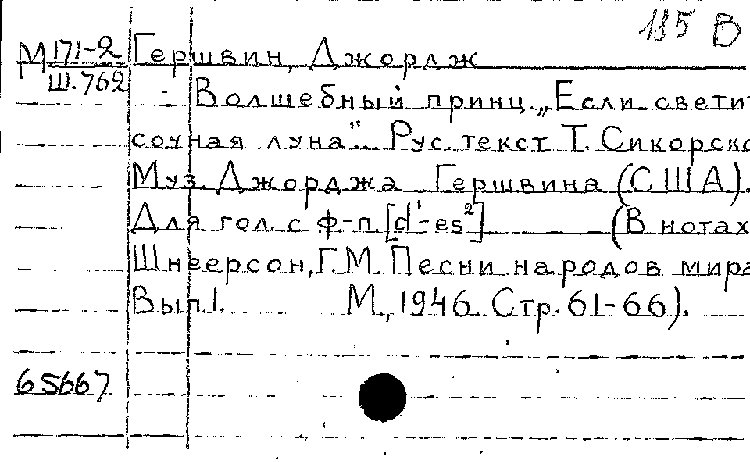 115 В
М 171-2 Гершвин, Джордж
Ш.762 - Волшебный принц. „Если свети
сочная луна". Рус. текст Т. Сикорско
Муз. Джорджа Гершвина (США).
Для гол. с ф-п. [d¹-es²] (В нотах
Шнеерсон, Г.М. Песни народов мира
Вып.1. М., 1946. Стр. 61-66).
65667